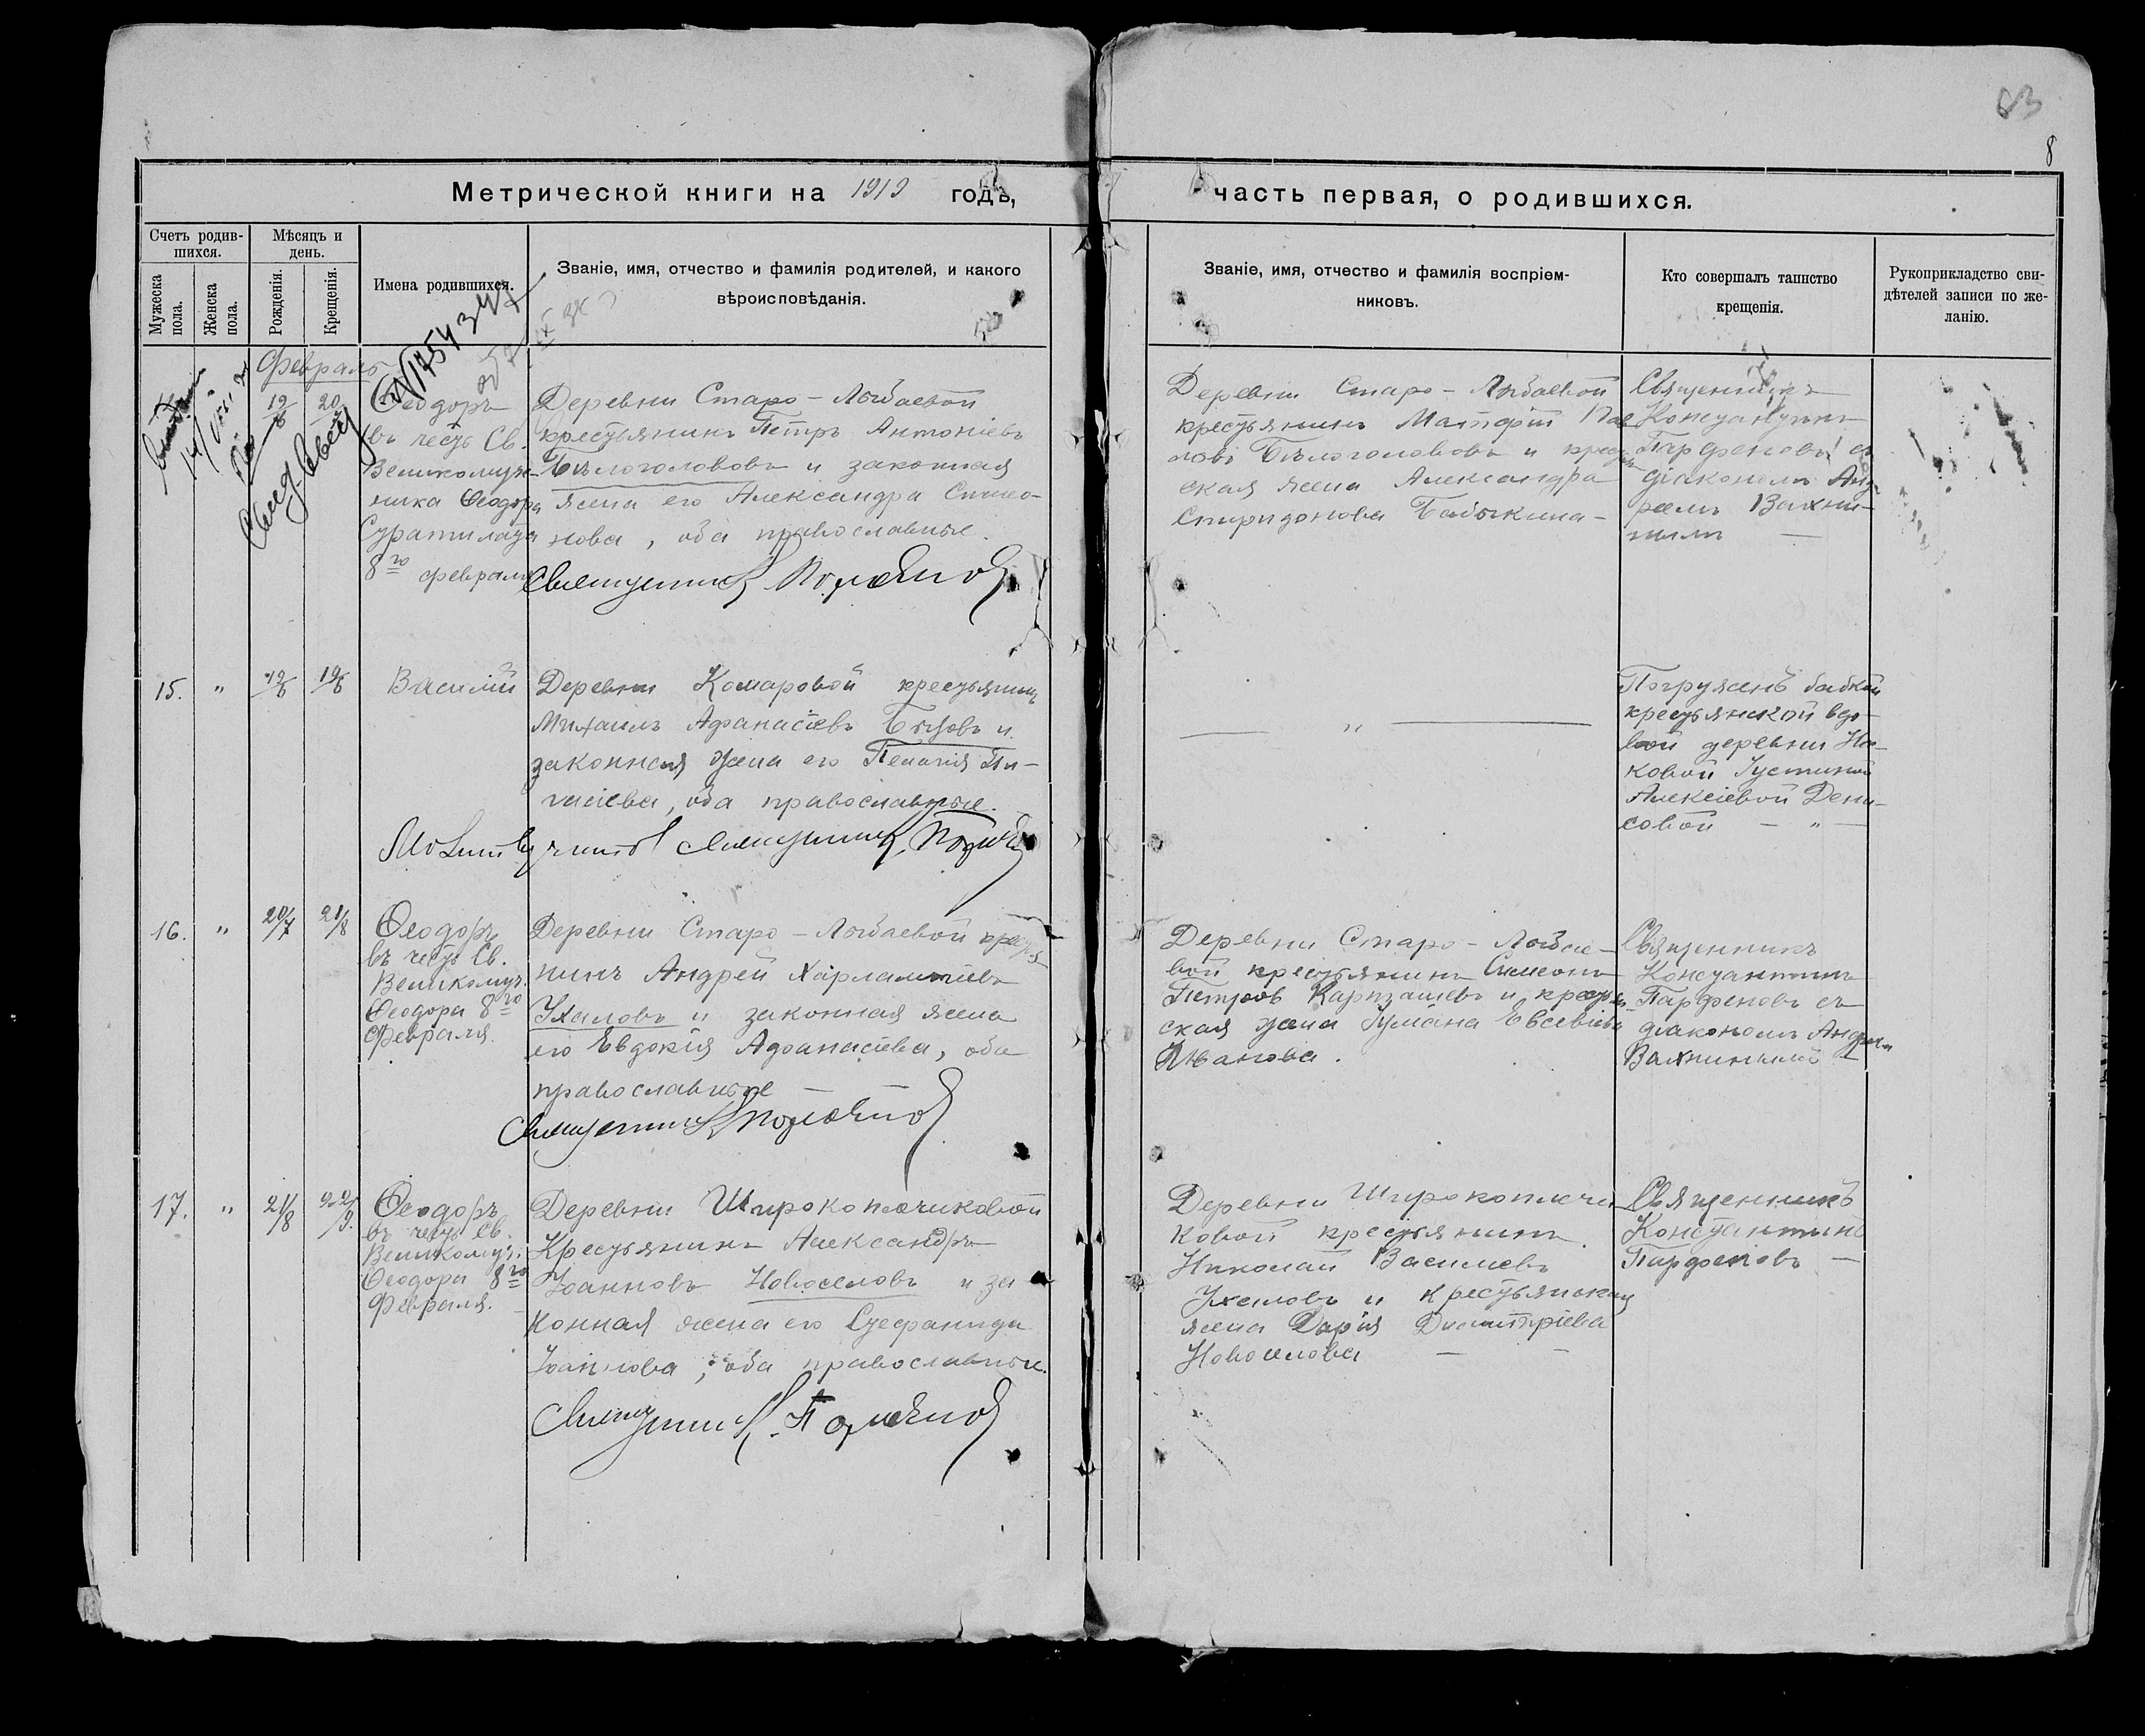 63
8
Метрической книги на 1919 годъ,
часть первая, о родившихся.
Счетъ родив-
шихся.
Мужеска
пола.
Женска
пола.
Мѣсяцъ и
день.
Рожденія.
Крещенія.
Имена родившихся.
Званіе, имя, отчество и фамилія родителей, и какого
вѣроисповѣданія.
Званіе, имя, отчество и фамилія воспріем-
никовъ.
Кто совершалъ таинство
крещенія.
Рукоприкладство сви-
дѣтелей записи по же-
ланію.
Февраль
19/6
20/
Ѳеодоръ
въ честь Св.
Великомуче-
ника Ѳеодора
Стратилата
8го февраля
Деревни Старо-Лыбаевой
крестьянинъ Петръ Антоніевъ
Бѣлоголововъ и законная
жена его Александра Симео-
нова, оба православные.
Священникъ К. Парфеновъ
Деревни Старо-Лыбаевой
крестьянинъ Матфій Пав
ловъ Бѣлоголововъ и крестьян
ская жена Александра
Спиридонова Бабыкина-
Священникъ
Константинъ
Парфеновъ съ
діакономъ Анд
реемъ Вахни-
нымъ —
15. " 19/6 19/6
Василій
Деревни Комаровой крестьянинъ
Михаилъ Аѳанасіевъ и
законная жена его Пелагія
оба православные.
Священникъ К. Парфеновъ
— " —
Погруженъ бабкой
крестьянской вдо-
вой деревни
ковой Іустиной
Алексіевой Дени-
совой — " —
16. " 20/7 21/8
Ѳеодоръ
въ честь Св.
Великомуч.
Ѳеодора 8го
Февраля.
Деревни Старо-Лыбаевой крестья-
нинъ Андрей Харлампіевъ
Ухаловъ и законная жена
его Евдокія Аѳанасіева, оба
православные —
Священникъ К. Парфеновъ
Деревни Старо-Лыбае-
вой крестьянинъ Симеонъ
Петровъ и крестьян
ская жена Іуліана Евсевіева
Иванова.
Священникъ
Константинъ
Парфеновъ съ
діакономъ Андреем
Вахнинымъ —
17. " 21/8 22/9.
Ѳеодоръ
въ честь Св.
Великомуч.
Ѳеодора 8го
Февраля.
Деревни Широкоплечиковой
Крестьянинъ Александръ
Іоанновъ Новоселовъ и за
конная жена его Стефанида
Іоаннова, оба православные.
Священникъ К. Парфеновъ
Деревни Широкоплечи
ковой крестьянинъ
Николай Василіевъ
Ухаловъ и крестьянская
жена Дарія Димитріева
Новоселова — —
Священникъ
Константинъ
Парфеновъ —